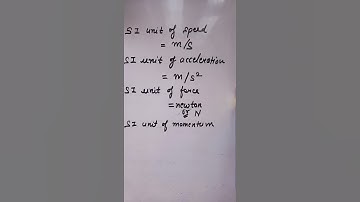 SI unit of speed
= m/s
SI unit of acceleration
= m/s²
SI unit of force
= newton
N
SI unit of momentum